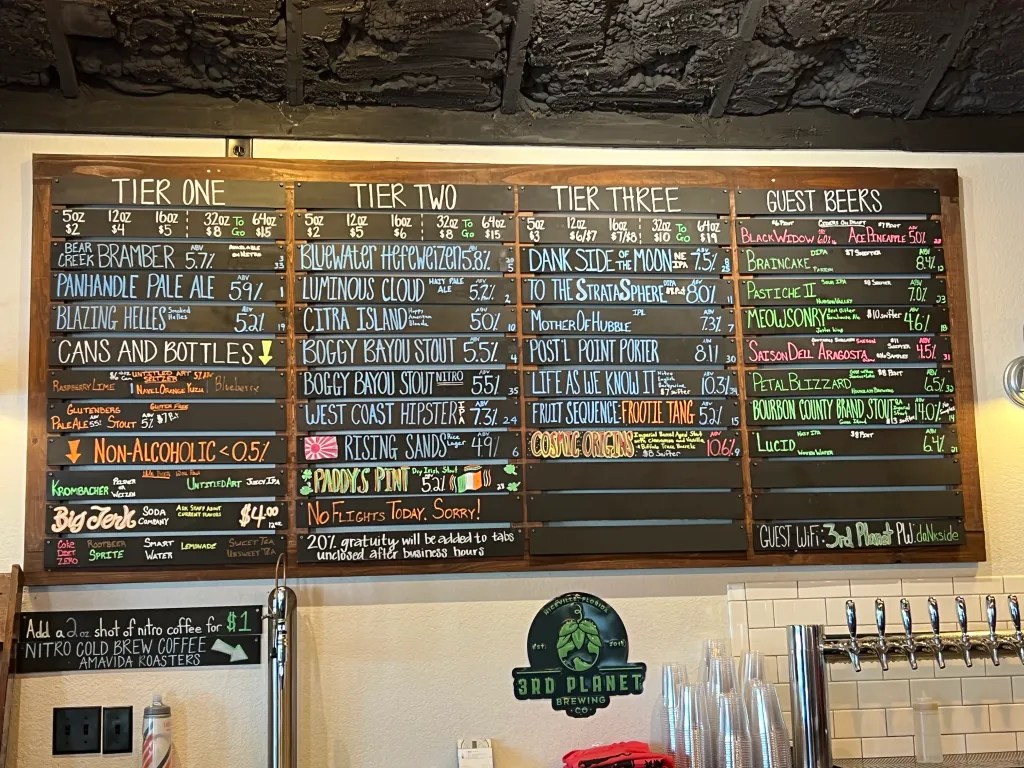 TIER ONE
5oz 12oz 16oz 32oz To 64oz
$2 $4 $5 $8 Go $15
BEAR CREEK BRAMBER ABV 5.7% AVAILABLE ON NITRO 33
PANHANDLE PALE ALE ABV 5.9%
BLAZING HELLES Smoked Helles ABV 5.2% 19
CANS AND BOTTLES
UNTITLED ART SELTZER
RASPBERRY LIME NAVEL ORANGE YUZU Blueberry
GLUTENBERG GLUTEN FREE
PALE ALE 5.5% STOUT 5%
NON-ALCOHOLIC <0.5%
KROMBACHER PILSNER OR WEIZEN UNTITLED ART JUICY IPA
Big Jerk SODA COMPANY ASK STAFF ABOUT CURRENT FLAVORS $4.00 12oz
COKE DIET ZERO ROOTBEER SPRITE SMART WATER LEMONADE SWEET TEA UNSWEET TEA
TIER TWO
5oz 12oz 16oz 32oz To 64oz
$2 $5 $6 $8 Go $15
BLUEWATER HEFEWEIZEN 5.8%
LUMINOUS CLOUD HAZY PALE ALE ABV 5.2% 2
CITRA ISLAND Hoppy American Blonde ABV 5.0% 10
BOGGY BAYOU STOUT ABV 5.5% 4
BOGGY BAYOU STOUT NITRO ABV 5.5% 35
WEST COAST HIPSTER IPA ABV 7.3% 24
RISING SANDS Rice Lager ABV 4.9% 6
PADDY'S PINT Dry Irish Stout 5.2%
NO FLIGHTS TODAY. SORRY!
20% gratuity will be added to tabs
unclosed after business hours
TIER THREE
5oz 12oz 16oz 32oz To 64oz
$3 $6/$7 $7/$8 $10 Go $19
DANK SIDE OF THE MOON NE IPA ABV 7.5%
TO THE STRATASPHERE ABV 8.0% 11
MOTHER OF HUBBLE IPL ABV 7.3% 7
POST L POINT PORTER ABV 8.11 30
LIFE AS WE KNOW IT ABV 10.3%
FRUIT SEQUENCE: FROOTIE TANG ABV 5.2% 15
COSMIC ORIGINS Imperial Barrel Aged Stout with Cinnamon and Vanilla Buffalo Trace Barrels $8 Snifter ABV 10.6% 9
GUEST BEERS
CIDERS ON DRAFT
BLACK WIDOW 6.0% ACE PINEAPPLE ABV 5.0%
BRAINCAKE DIPA $7 SNIFTER ABV 8.4% 13
PASTICHE II SOUR IPA HUDSON VALLEY ABV 7.0% 23
MEOWSONRY $10 snifter ABV 4.6% 18
SAISON DELL ARAGOSTA ABV 4.5% 31
PETAL BLIZZARD $8 POINT ABV 6.5% 32
BOURBON COUNTY BRAND STOUT Goose Island $13 snifter ABV 14.0% 14
LUCID $8 POINT ABV 6.4% 21
GUEST WIFI: 3rd Planet PW: daNkside
Add a 2oz shot of nitro coffee for $1
NITRO COLD BREW COFFEE
AMAVIDA ROASTERS
NICEVILLE, FLORIDA
est.
3RD PLANET
BREWING
CO